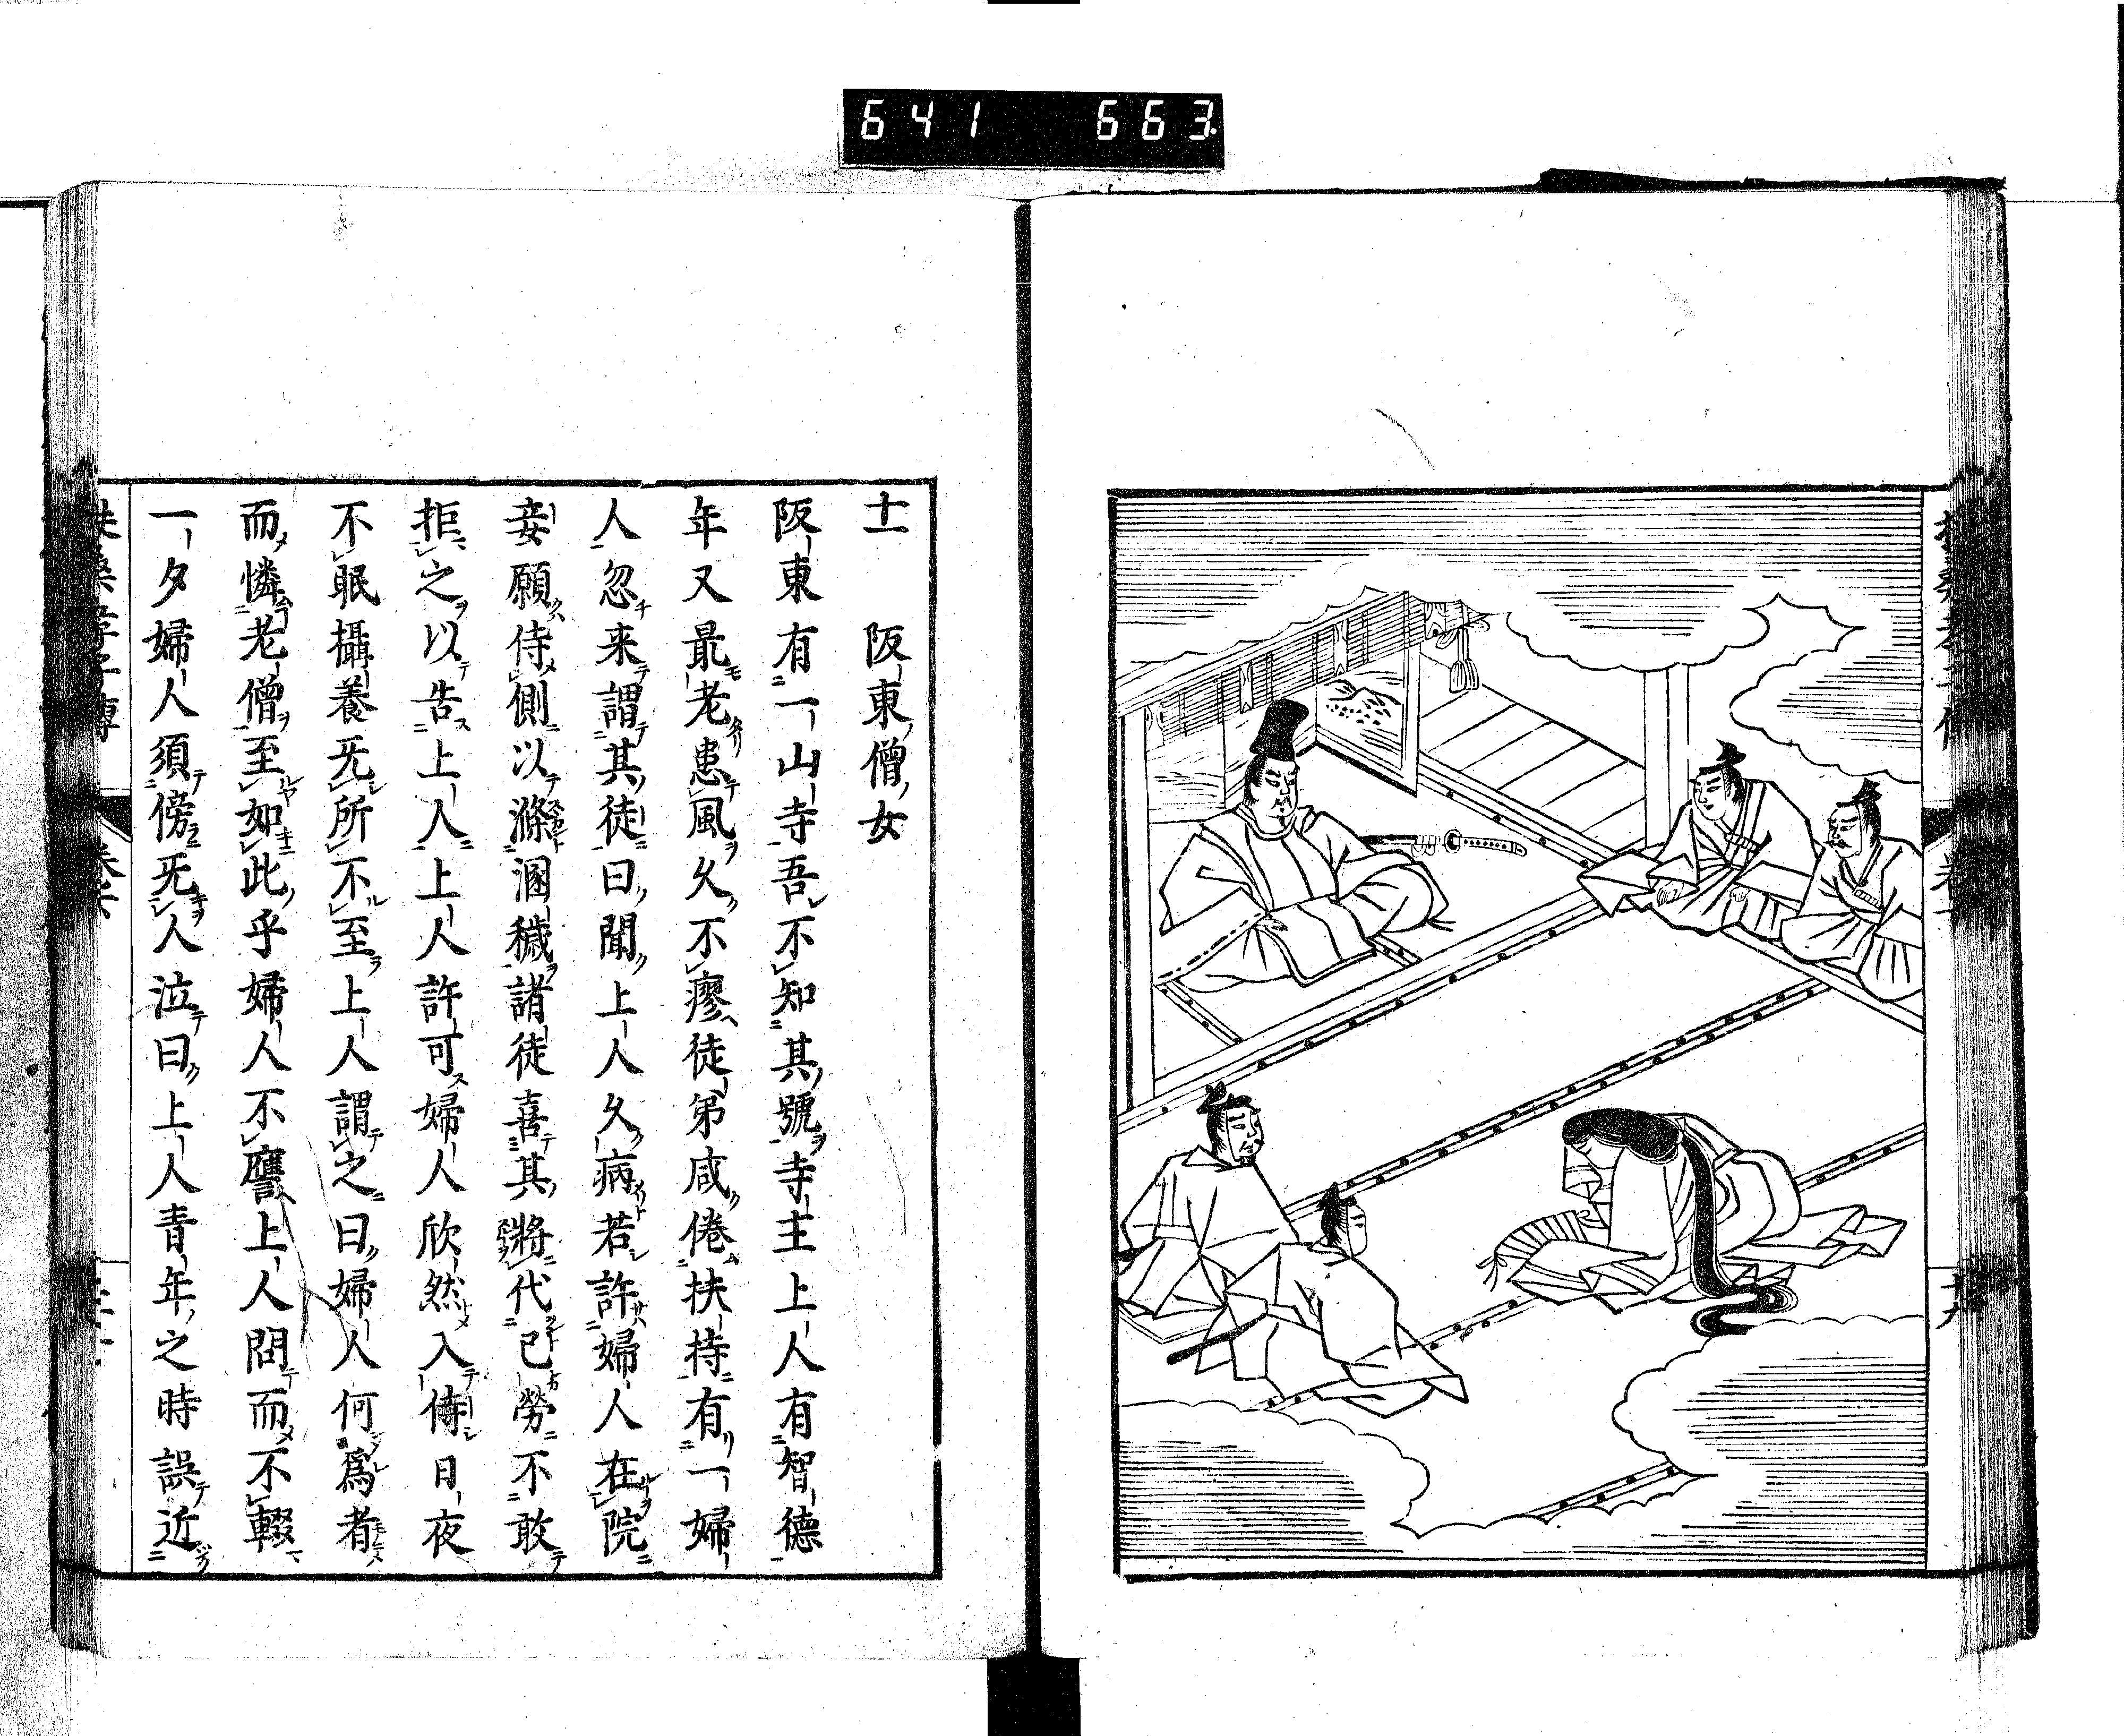 641 663
十一 阪東僧女
阪東有一山寺吾不知其號寺主上人有智德
年又最老患風久不瘳徒弟咸倦扶持有一婦
人忽来謂其徒曰聞上人久病若許婦人在院
妾願侍側以滌溷穢諸徒喜其將代己勞不敢
拒之以告上人上人許可婦人欣然入侍日夜
不眠攝養无所不至上人謂之曰婦人何爲者
而憐老僧至如此乎婦人不譍上人問而不輟
一夕婦人須傍无人泣曰上人青年之時誤近